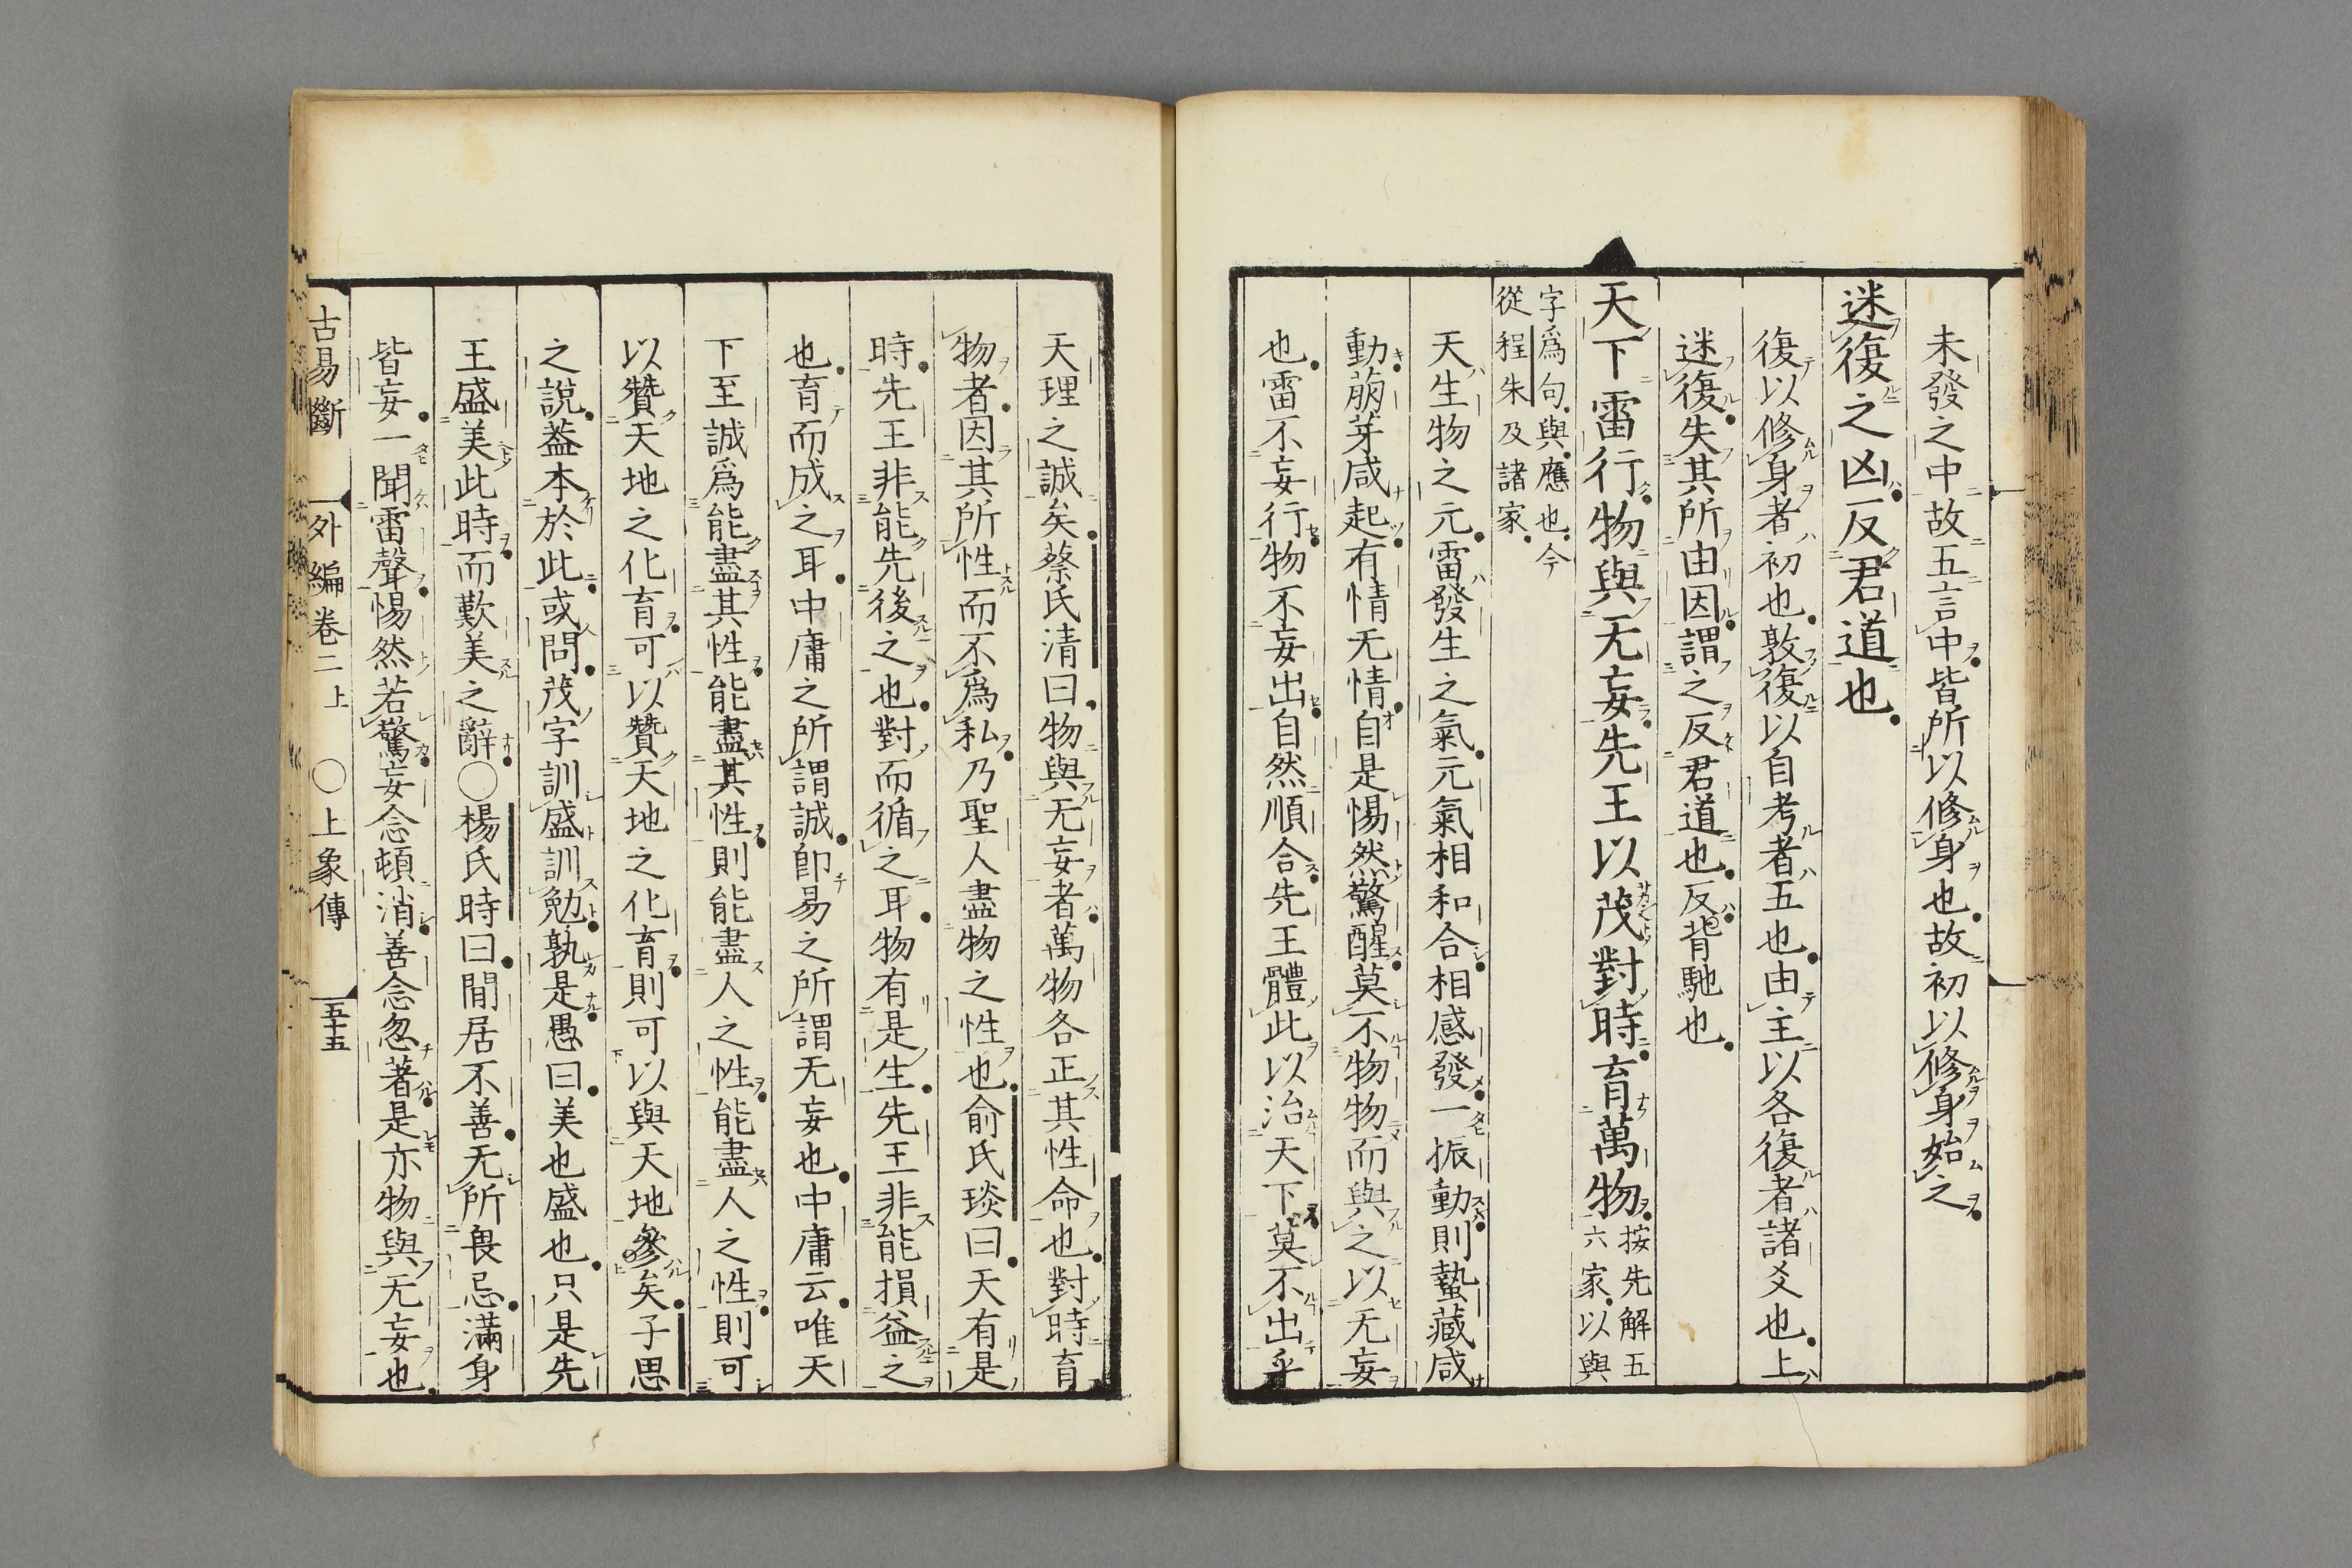 未發之中故五言中皆所以修身也故初以修身始之
迷復之凶反君道也
復以修身者初也敦復以自考者五也由主以各復者諸爻也上
迷復失其所由因謂之反君道也反背馳也
天下雷行物與无妄先王以茂對時育萬物按先解五
六家以與
字爲句與應也今
從程朱及諸家
天生物之元雷發生之氣元氣相和合相感發一振動則蟄藏咸
動萠芽咸起有情无情自是惕然驚醒莫不物物而與之以无妄
也雷不妄行物不妄出自然順合先王體此以治天下莫不出乎
天理之誠矣蔡氏清曰物與无妄者萬物各正其性命也對時育
物者因其所性而不爲私乃聖人盡物之性也俞氏琰曰天有是
時先王非能先後之也對而循之耳物有是生先王非能損益之
也育而成之耳中庸之所謂誠卽易之所謂无妄也中庸云唯天
下至誠爲能盡其性能盡其性則能盡人之性能盡人之性則可
以贊天地之化育可以贊天地之化育則可以與天地參矣子思
之說葢本於此或問茂字訓盛訓勉孰是愚曰美也盛也只是先
王盛美此時而歎美之辭〇楊氏時曰閒居不善无所畏忌滿身
皆妄一聞雷聲惕然若驚妄念頓消善念忽著是亦物與无妄也
古易斷 外編卷二上 〇上象傳 五十五